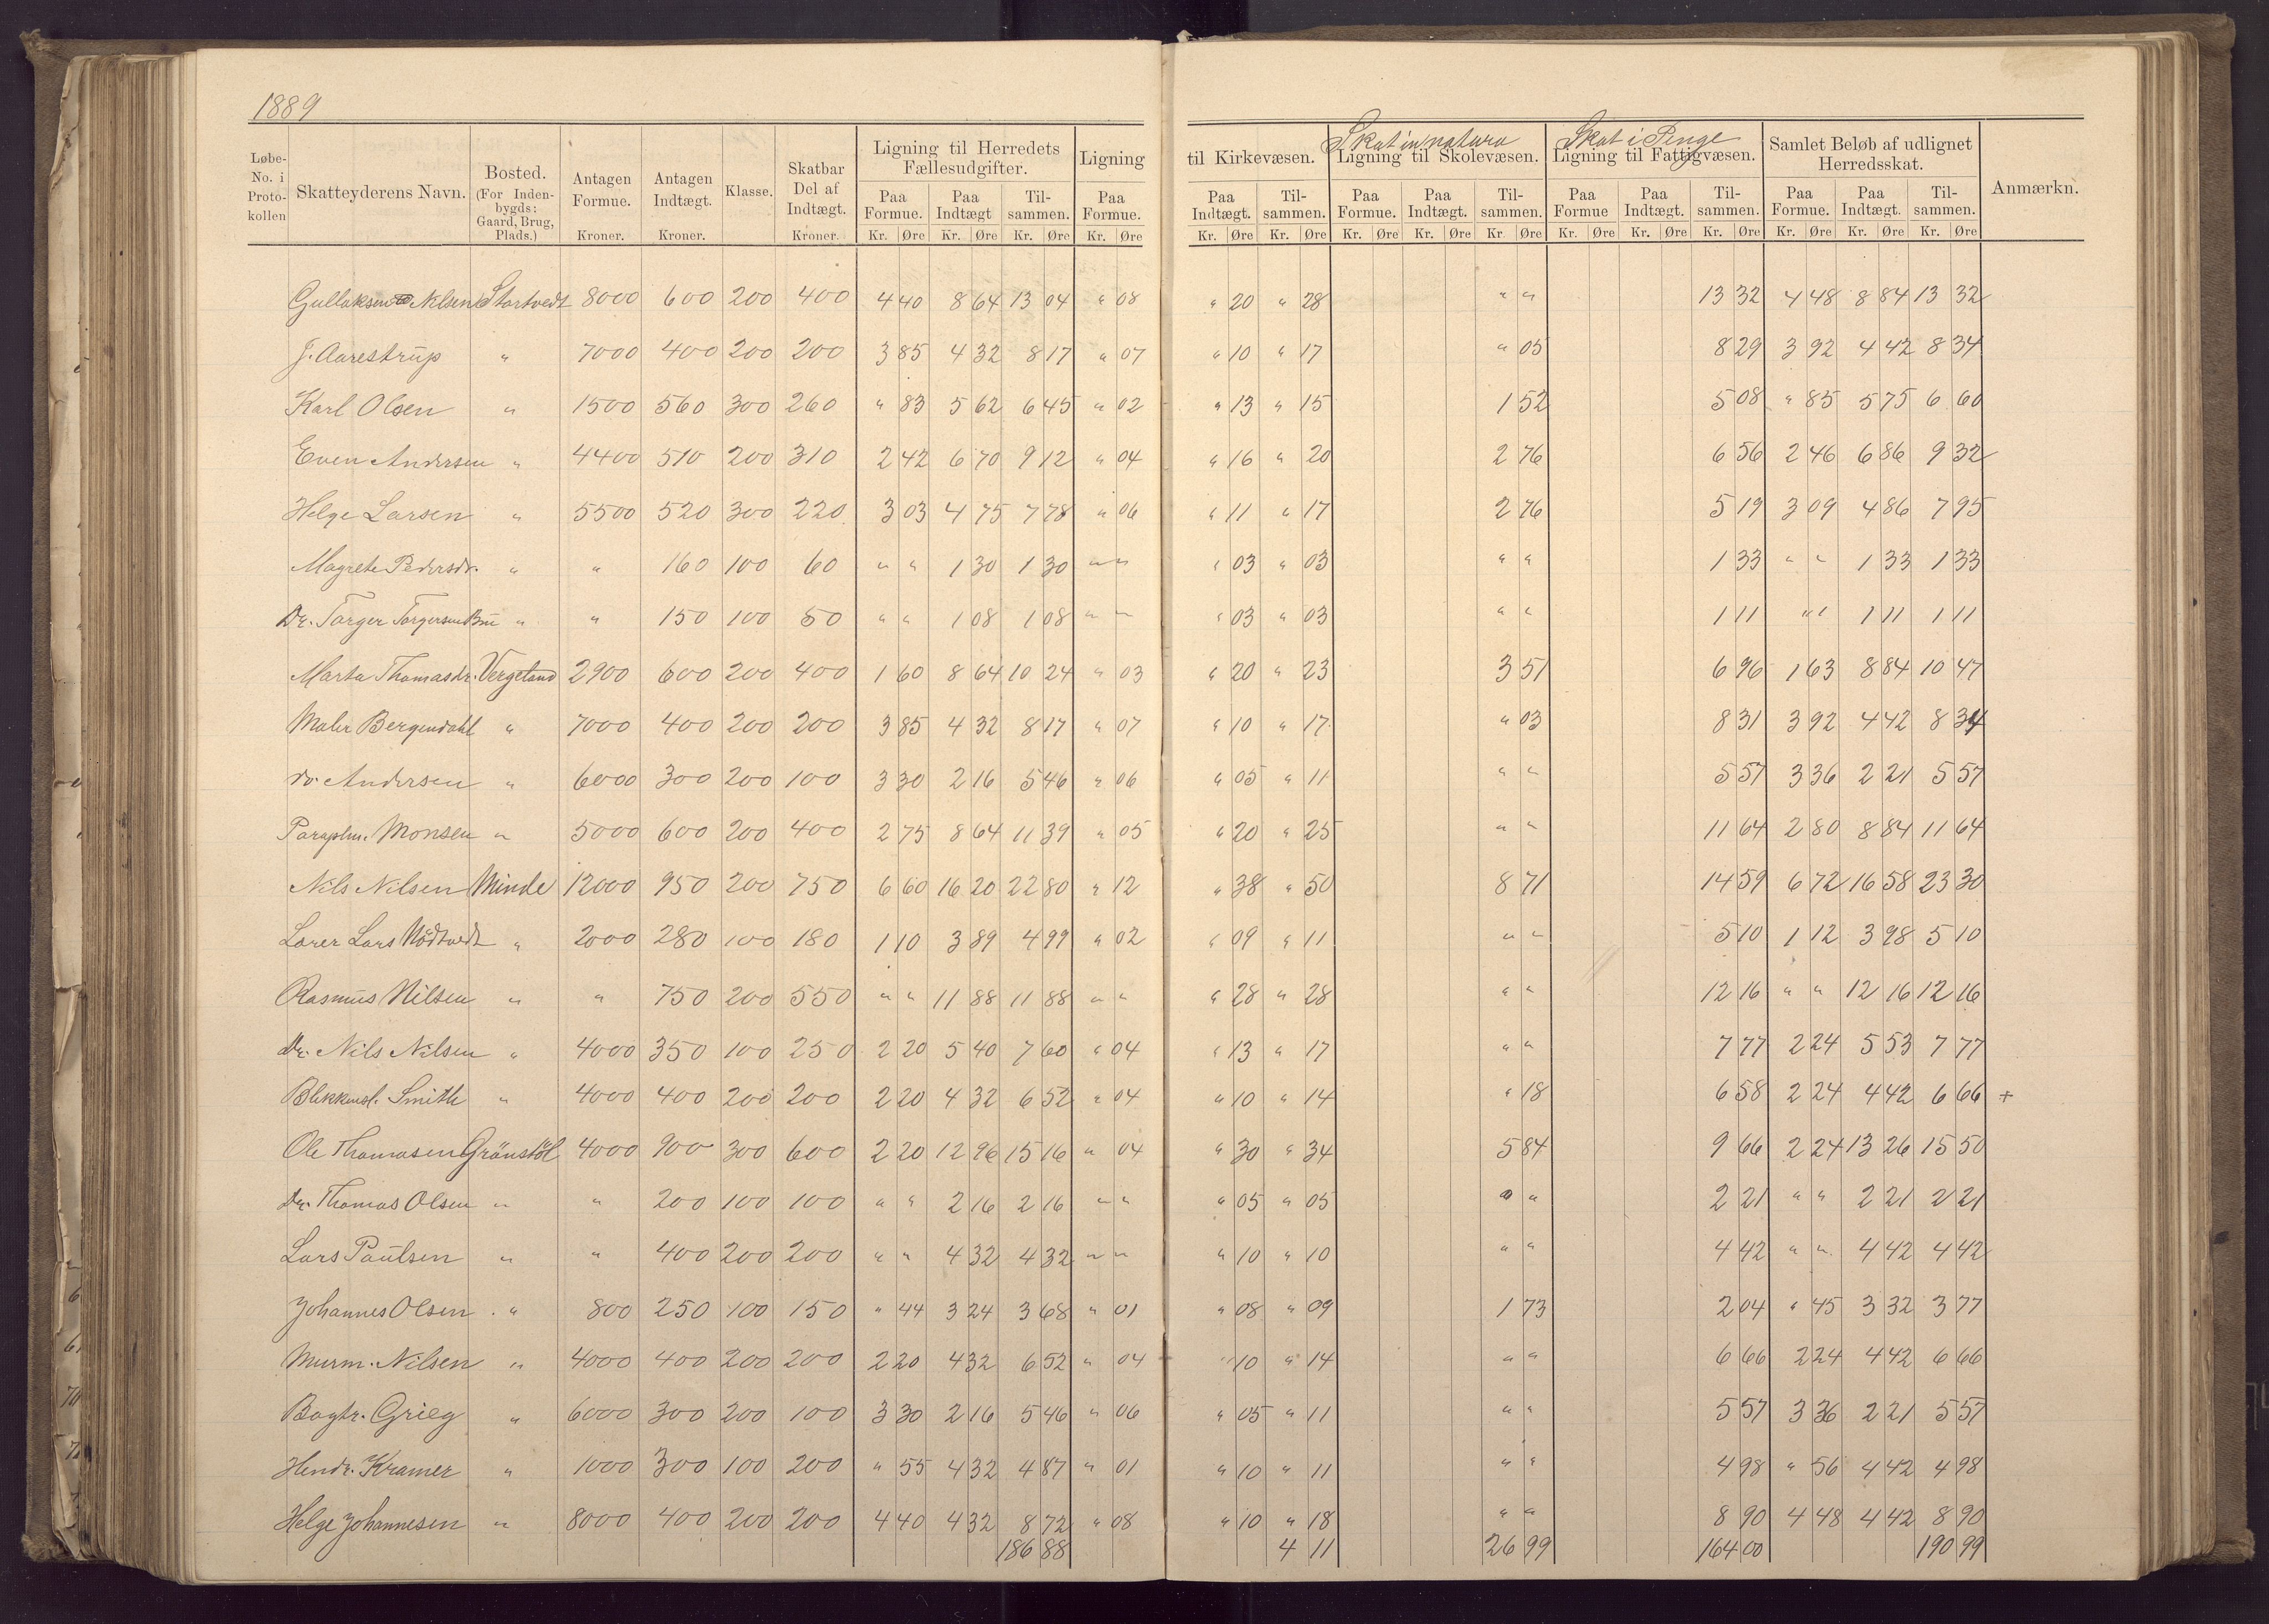 1889
Løbe-No. i Proto-kollen | Skatteyderens Navn. | Bosted. (For Inden-bygds: Gaard, Brug, Plads.) | Antagen Formue. Kroner. | Antagen Indtægt. Kroner. | Klasse. | Skatbar Del af Indtægt. Kroner. | Ligning til Herredets Fællesudgifter. Paa Formue. Kr. Øre Paa Indtægt Kr. Øre Til-sammen. Kr. Øre | Ligning Paa Formue. Kr. Øre | til Kirkevæsen. Paa Indtægt. Kr. Øre Til-sammen. Kr. Øre | Skat in natura Ligning til Skolevæsen. Paa Formue. Kr. Øre Paa Indtægt. Kr. Øre Til-sammen. Kr. Øre | Skat i Penge Ligning til Fattigvæsen. Paa Formue Kr. Øre Paa Indtægt. Kr. Øre Til-sammen. Kr. Øre | Samlet Beløb af udlignet Herredsskat. Paa Formue. Kr. Øre Paa Indtægt. Kr. Øre Til-sammen. Kr. Øre | Anmærkn.
Gullaksen Nilsen Stortvedt 8000 600 200 400 4 40 8 64 13 04 " 08 " 20 " 28 " " 13 32 4 48 8 84 13 32
J. Aarestrup " 7000 400 200 200 3 85 4 32 8 17 " 07 " 10 " 17 " 05 8 29 3 92 4 42 8 34
Karl Olsen " 1500 560 300 260 " 83 5 62 6 45 " 02 " 13 " 15 1 52 5 08 " 85 5 75 6 60
Even Andersen " 4400 510 200 310 2 42 6 70 9 12 " 04 " 16 " 20 2 76 6 56 2 46 6 86 9 32
Helge Larsen " 5500 520 300 220 3 03 4 75 7 78 " 06 " 11 " 17 2 76 5 19 3 09 4 86 7 95
Magrete Pedersdr. " " 160 100 60 " " 1 30 1 30 " " " 03 " 03 " " 1 33 " " 1 33 1 33
Dr. Torger Torgersen " " 150 100 50 " " 1 08 1 08 " " " 03 " 03 " " 1 11 " " 1 11 1 11
Marta Thomasdr. Vergeland 2900 600 200 400 1 60 8 64 10 24 " 03 " 20 " 23 3 51 6 96 1 63 8 84 10 47
Maler Bergendahl " 7000 400 200 200 3 85 4 32 8 17 " 07 " 10 " 17 " 03 8 31 3 92 4 42 8 34
do. Andersen " 6000 300 200 100 3 30 2 16 5 46 " 06 " 05 " 11 " " 5 57 3 36 2 21 5 57
Paraplm. Monsen " 5000 600 200 400 2 75 8 64 11 39 " 05 " 20 " 25 " " 11 64 2 80 8 84 11 64
Nils Nilsen Minde 12000 950 200 750 6 60 16 20 22 80 " 12 " 38 " 50 8 71 14 59 6 72 16 58 23 30
Lærer Lars Nödtvedt " 2000 280 100 180 1 10 3 89 4 99 " 02 " 09 " 11 " " 5 10 1 12 3 98 5 10
Rasmus Nilsen " " 750 200 550 " " 11 88 11 88 " " " 28 " 28 " " 12 16 " " 12 16 12 16
Dr. Nils Nilsen " 4000 350 100 250 2 20 5 40 7 60 " 04 " 13 " 17 " " 7 77 2 24 5 53 7 77
Blikkensl. Smith " 4000 400 200 200 2 20 4 32 6 52 " 04 " 10 " 14 " 18 6 58 2 24 4 42 6 66 +
Ole Thomasen Gränstöl 4000 900 300 600 2 20 12 96 15 16 " 04 " 30 " 34 5 84 9 66 2 24 13 26 15 50
Dr. Thomas Olsen " " 200 100 100 " " 2 16 2 16 " " " 05 " 05 " " 2 21 " " 2 21 2 21
Lars Paulsen " " 400 200 200 " " 4 32 4 32 " " " 10 " 10 " " 4 42 " " 4 42 4 42
Johannes Olsen " 800 250 100 150 " 44 3 24 3 68 " 01 " 08 " 09 1 73 2 04 " 45 3 32 3 77
Murm. Nilsen " 4000 400 200 200 2 20 4 32 6 52 " 04 " 10 " 14 " " 6 66 2 24 4 42 6 66
Bogtr. Grieg " 6000 300 200 100 3 30 2 16 5 46 " 06 " 05 " 11 " " 5 57 3 36 2 21 5 57
Hendr. Kramer " 1000 300 100 200 " 55 4 32 4 87 " 01 " 10 " 11 " " 4 98 " 56 4 42 4 98
Helge Johannesen " 8000 400 200 200 4 40 4 32 8 72 " 08 " 10 " 18 " " 8 90 4 48 4 42 8 90
186 88 4 11 26 99 164 00 190 99